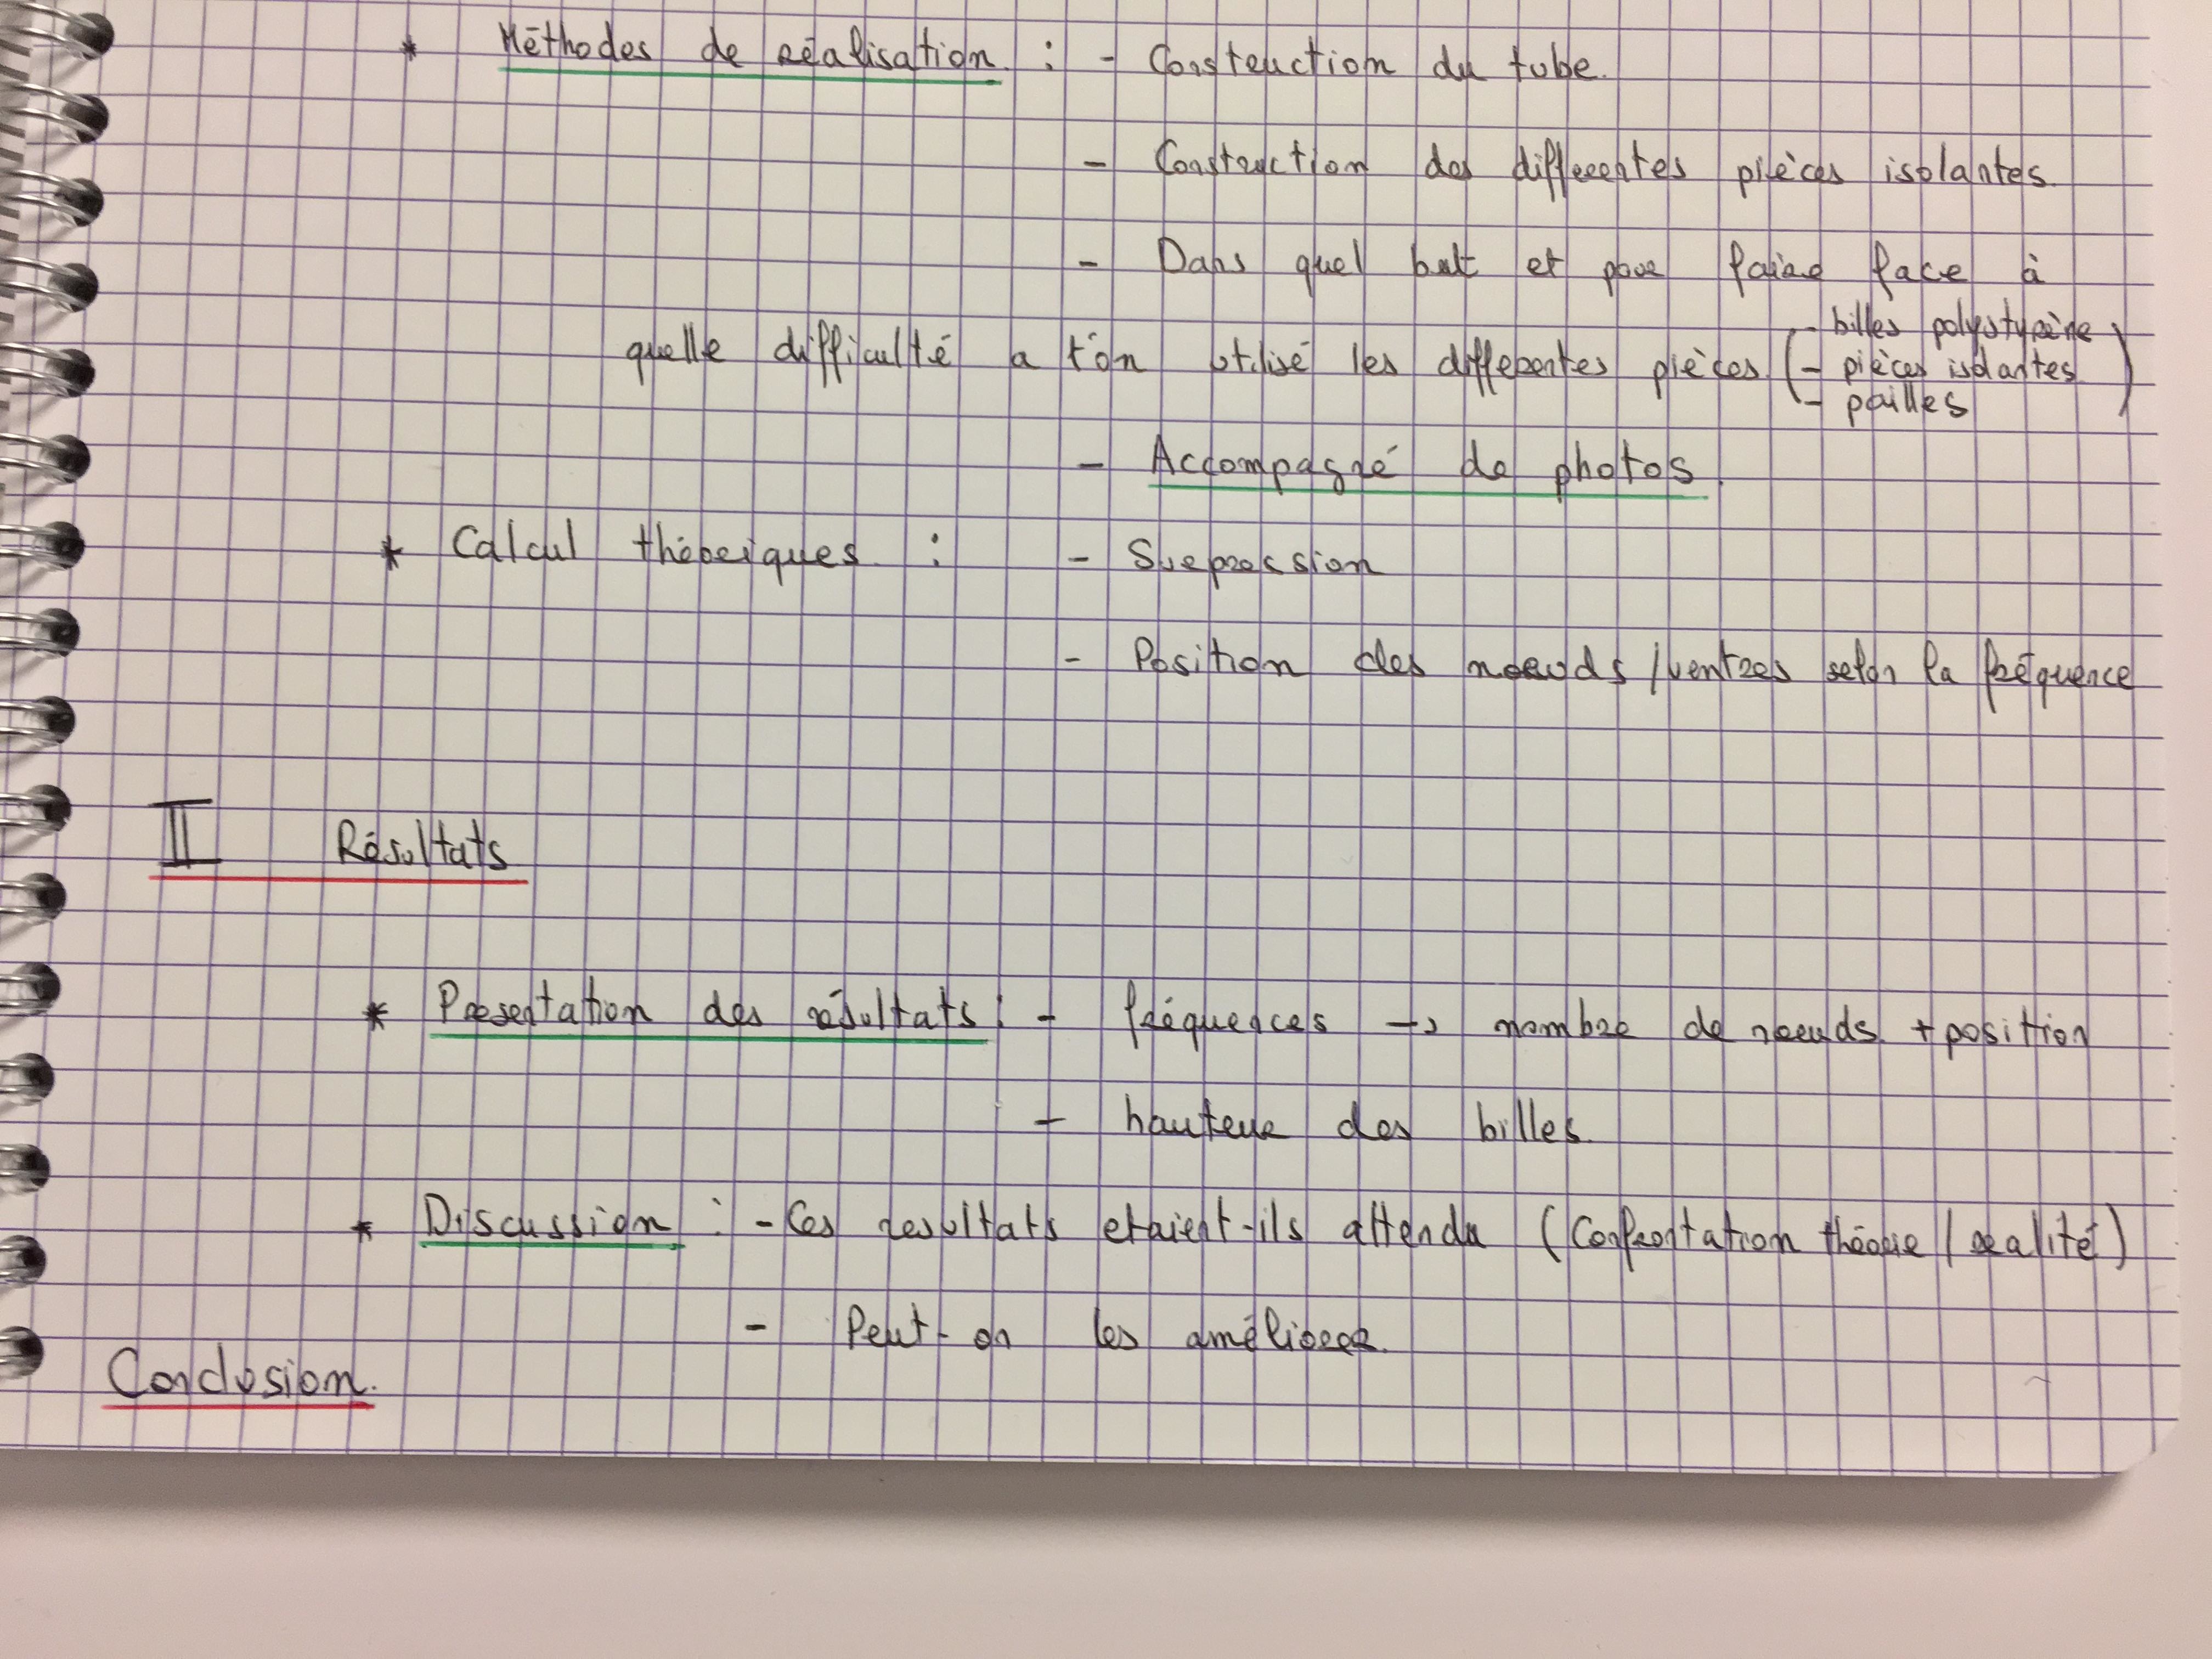 * Méthodes de réalisation : - Construction du tube.
- Construction des differentes pièces isolantes.
- Dans quel but et pour faire face à
quelle difficulté a t'on utilisé les differentes pièces (- billes polystyrène
- pièces isolantes
- pailles)
- Accompagné de photos.
* Calcul théoriques : - Surpression
- Position des noeuds / ventres selon la fréquence
II Résultats
* Presentation des résultats : - fréquences → nombre de noeuds + position
- hauteur des billes.
* Discussion : - Ces resultats etaient-ils attendu (Confrontation théorie / realité)
- Peut-on les améliorer.
Conclusion.